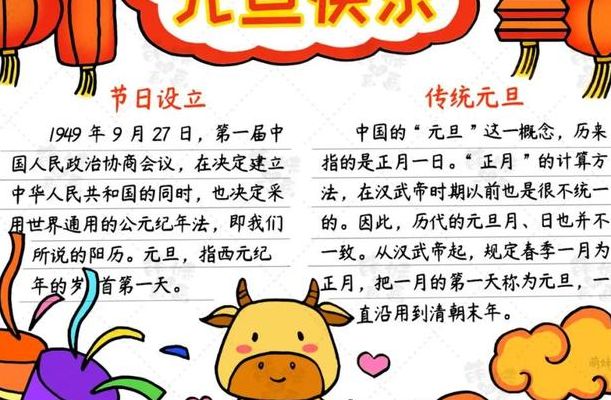 元旦快乐
节日设立
1949 年 9 月 27 日，第一届中
国人民政治协商会议，在决定建立
中华人民共和国的同时，也决定采
用世界通用的公元纪年法，即我们
所说的阳历。元旦，指西元纪
年的岁首第一天。
传统元旦
中国的“元旦”这一概念，历来
指的是正月一日。“正月”的计算方
法，在汉武帝时期以前也是很不统一
的。因此，历代的元旦月、日也并不
一致。从汉武帝起，规定春季一月为
正月，把一月的第一天称为元旦，一
直沿用到清朝末年。